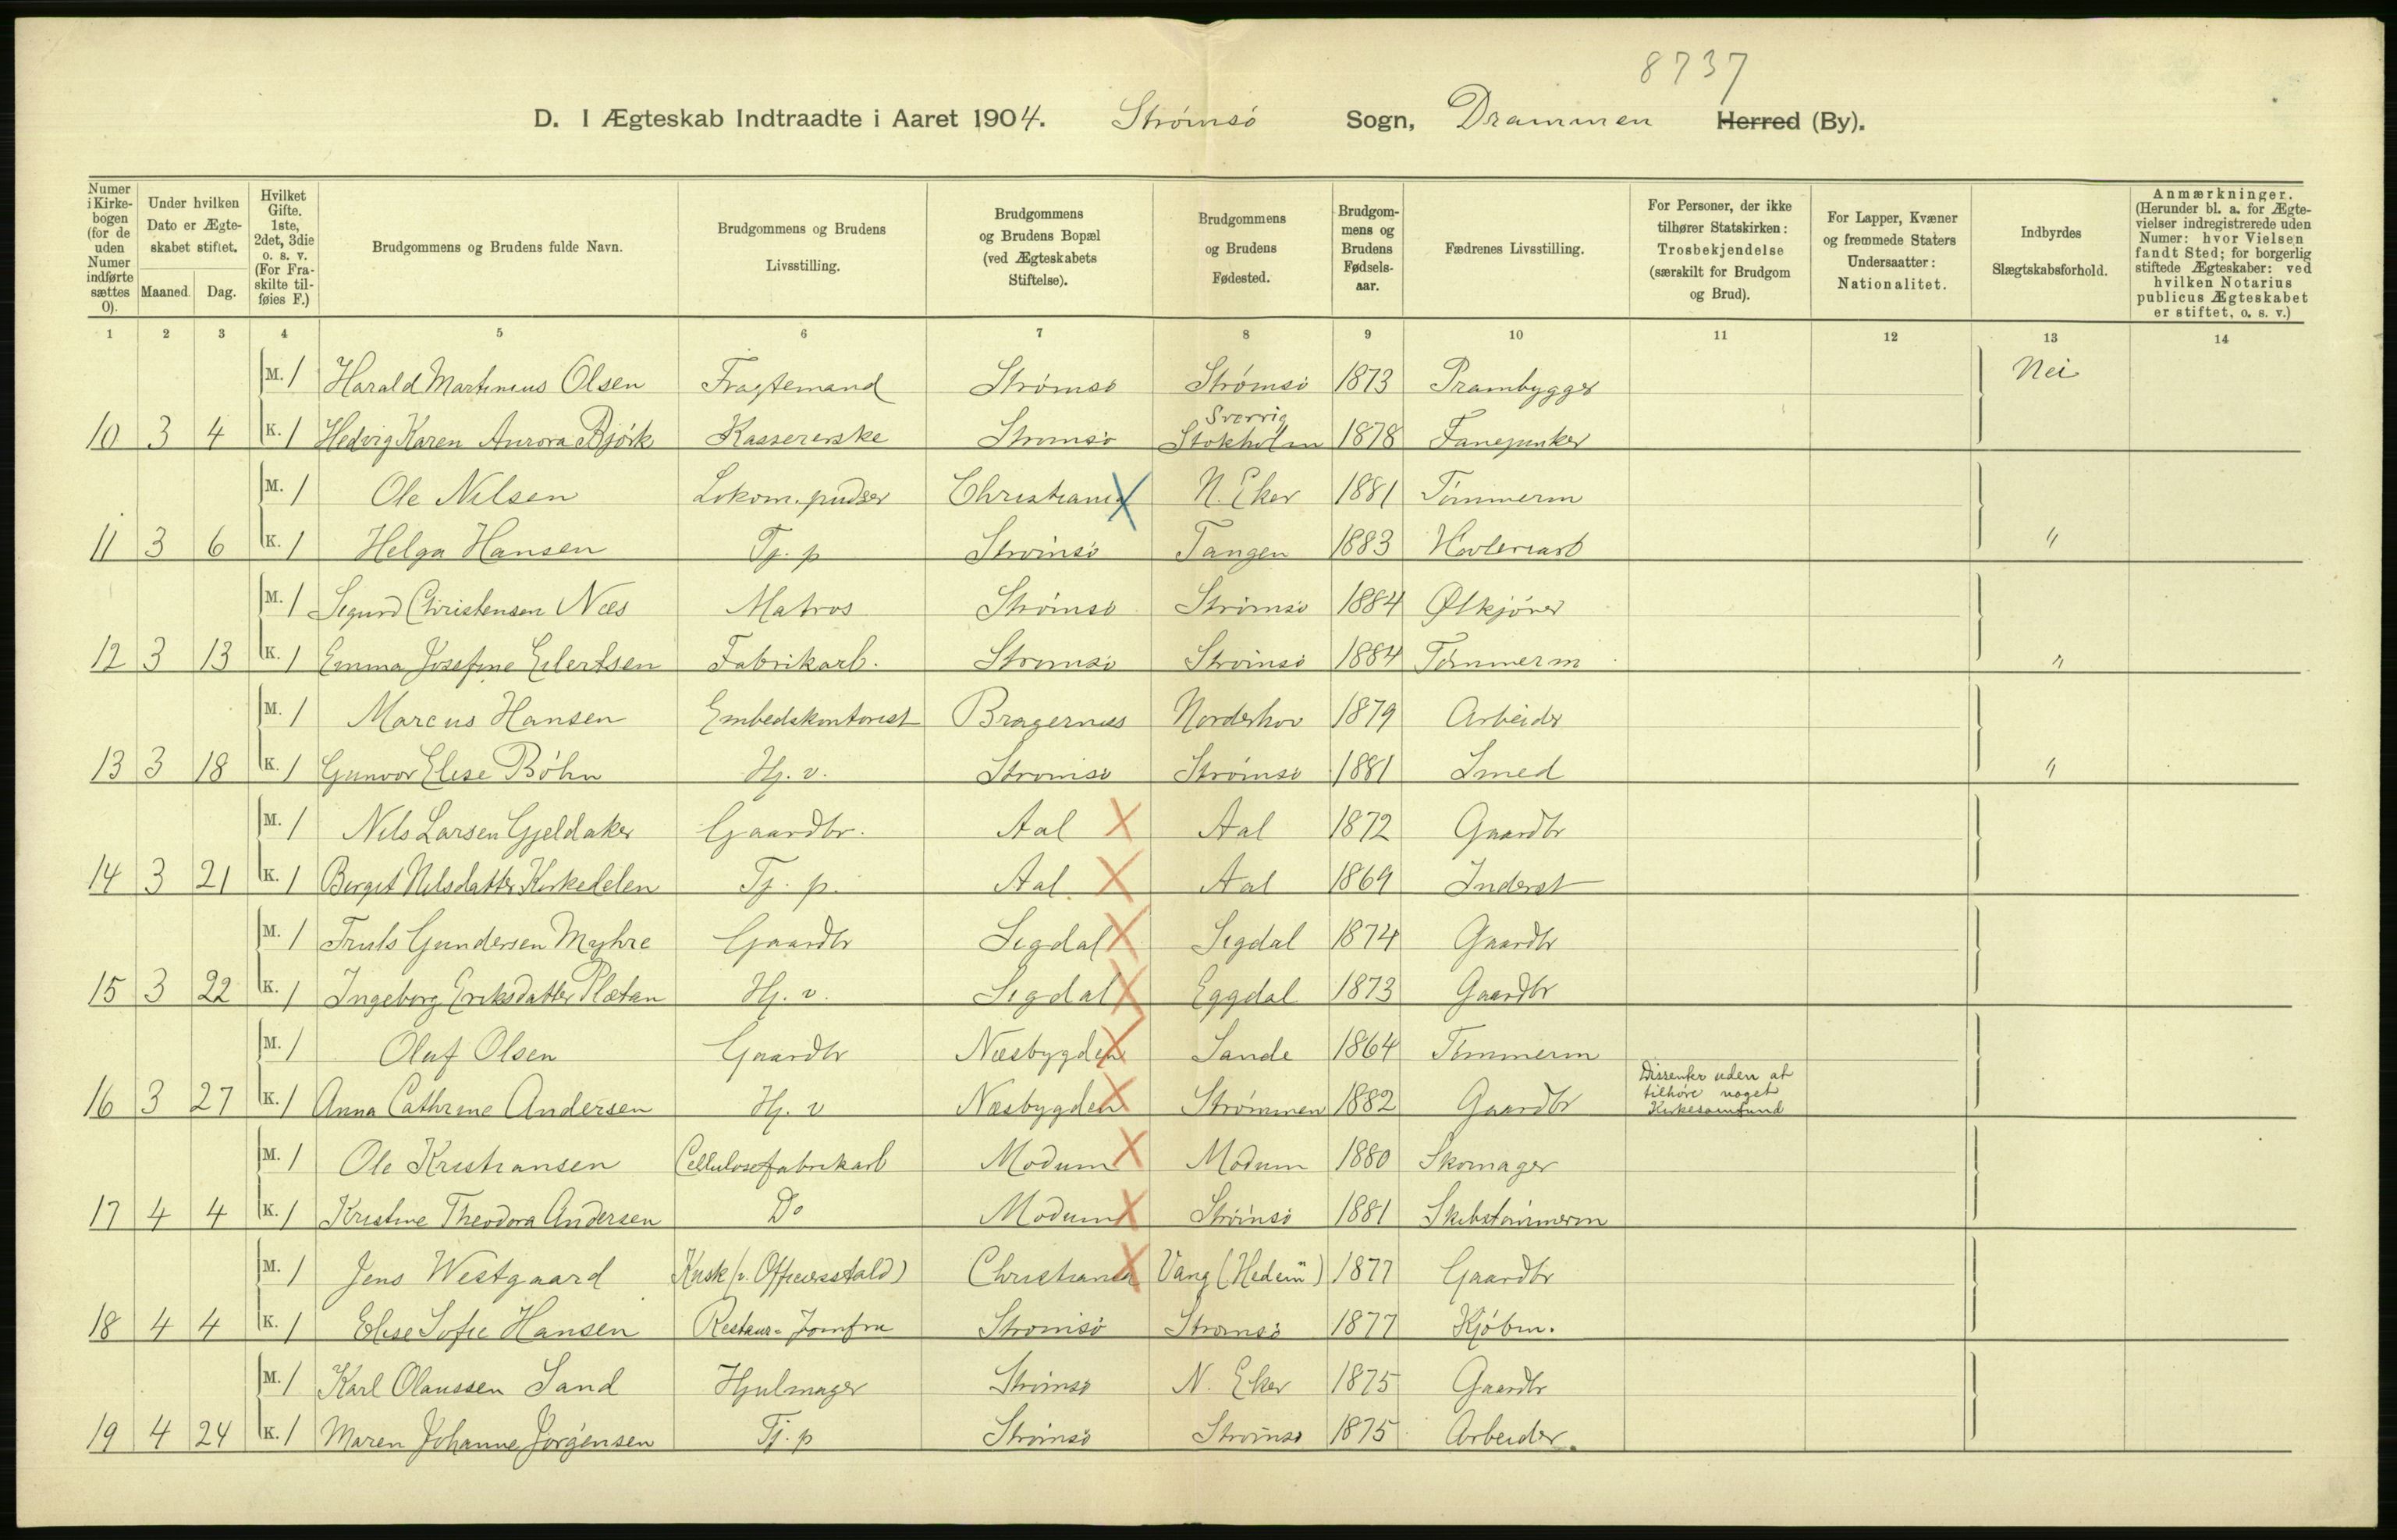 8737
D. I Ægteskab Indtraadte i Aaret 1904. Strømsø Sogn, Drammen Herred (By).
Numer i Kirkebogen (for de uden Numer indførte sættes 0).
Under hvilken Dato er Ægteskabet stiftet.
Maaned. Dag.
Hvilket Gifte. 1ste, 2det, 3die o. s. v. (For Fraskilte tilføies F.)
Brudgommens og Brudens fulde Navn.
Brudgommens og Brudens Livsstilling.
Brudgommens og Brudens Bopæl (ved Ægteskabets Stiftelse).
Brudgommens og Brudens Fødested.
Brudgommens og Brudens Fødselsaar.
Fædrenes Livsstilling.
For Personer, der ikke tilhører Statskirken: Trosbekjendelse (særskilt for Brudgom og Brud).
For Lapper, Kvæner og fremmede Staters Undersaatter: Nationalitet.
Indbyrdes Slægtskabsforhold.
Anmærkninger. (Herunder bl. a. for Ægtevielser indregistrerede uden Numer: hvor Vielsen fandt Sted; for borgerlig stiftede Ægteskaber: ved hvilken Notarius publicus Ægteskabet er stiftet, o. s. v.)
1 2 3 4 5 6 7 8 9 10 11 12 13 14
M. 1 Harald Martinius Olsen Fragtemand Strømsø Strømsø 1873 Prambygger Nei
Sverrig
10 3 4 K. 1 Hedvig Karen Aurora Bjørk Kassererske Strømsø Stokholm 1878 Fanejunker
M. 1 Ole Nilsen Lokom. pudser Christiania X N. Eker 1881 Tømmerm
11 3 6 K. 1 Helga Hansen Tj. p Strømsø Tangen 1883 Høvleriarb "
M. 1 Sigurd Christensen Næs Matros Strømsø Strømsø 1884 Ølkjører
12 3 13 K. 1 Emma Josefine Eilertsen Fabrikarb. Strømsø Strømsø 1884 Tømmerm "
M. 1 Marcus Hansen Embedskontorist Bragernæs Norderhov 1879 Arbeider
13 3 18 K. 1 Gunvor Elise Bøhn Hj. v. Strømsø Strømsø 1881 Smed "
M. 1 Nils Larsen Gjeldaker Gaardbr. Aal X Aal 1872 Gaardbr
14 3 21 K. 1 Birgit Nilsdatter Kirkedelen Tj. p. Aal X Aal 1869 Inderst
M. 1 Truls Gundersen Myhre Gaardbr Sigdal X Sigdal 1874 Gaardbr
15 3 22 K. 1 Ingeborg Eriksdatter Plætan Hj. v. Sigdal X Eggdal 1873 Gaardbr
M. 1 Oluf Olsen Gaardbr Næsbygden X Sande 1864 Tømmerm
Dissenter uden at
tilhøre noget
16 3 27 K. 1 Anna Cathrine Andersen Hj. v Næsbygden X Strømmen 1882 Gaardbr Kirkesamfund
M. 1 Ole Kristiansen Cellulosefabrikarb Modum X Modum 1880 Skomager
17 4 4 K. 1 Kristine Theodora Andersen Do Modum X Strømsø 1881 Skibstømmerm
M. 1 Jens Westgaard Kusk (v. Officersstald) Christiania X Vang (Hedem) 1877 Gaardbr
18 4 4 K. 1 Elise Sofie Hansen Restaur. Jomfru Strømsø Strømsø 1877 Kjøbm.
M. 1 Karl Olaussen Sand Hjulmager Strømsø N. Eker 1875 Gaardbr
19 4 24 K. 1 Maren Johanne Jørgensen Tj. p Strømsø Strømsø 1875 Arbeider.